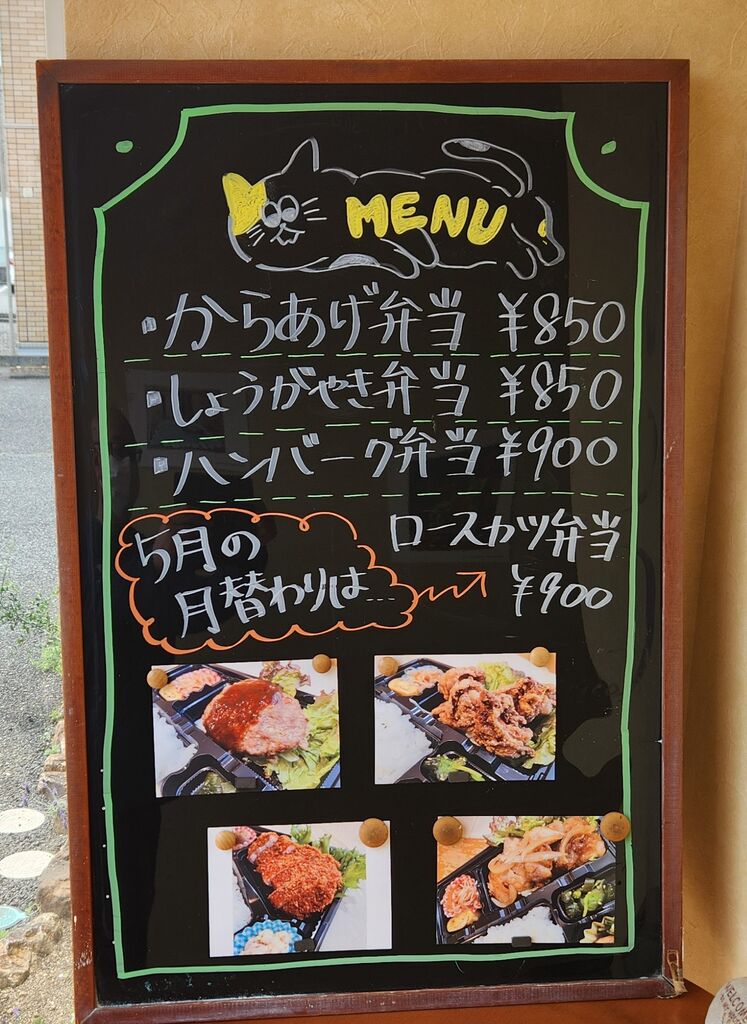 MENU
・からあげ弁当 ¥850
・しょうがやき弁当 ¥850
・ハンバーグ弁当 ¥900
5月の
月替わりは…
ロースカツ弁当
¥900
WELCOME